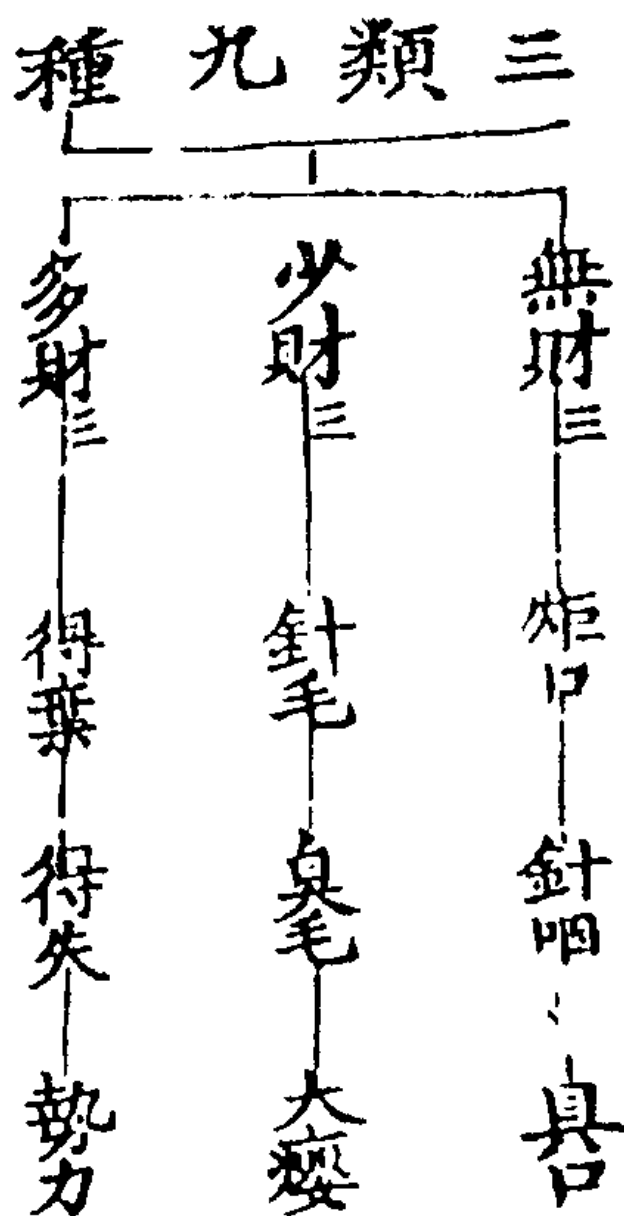 三類九種
無財三 炬口 針咽 臭口
少財三 針毛 臭毛 大癭
多財三 得棄 得失 勢力